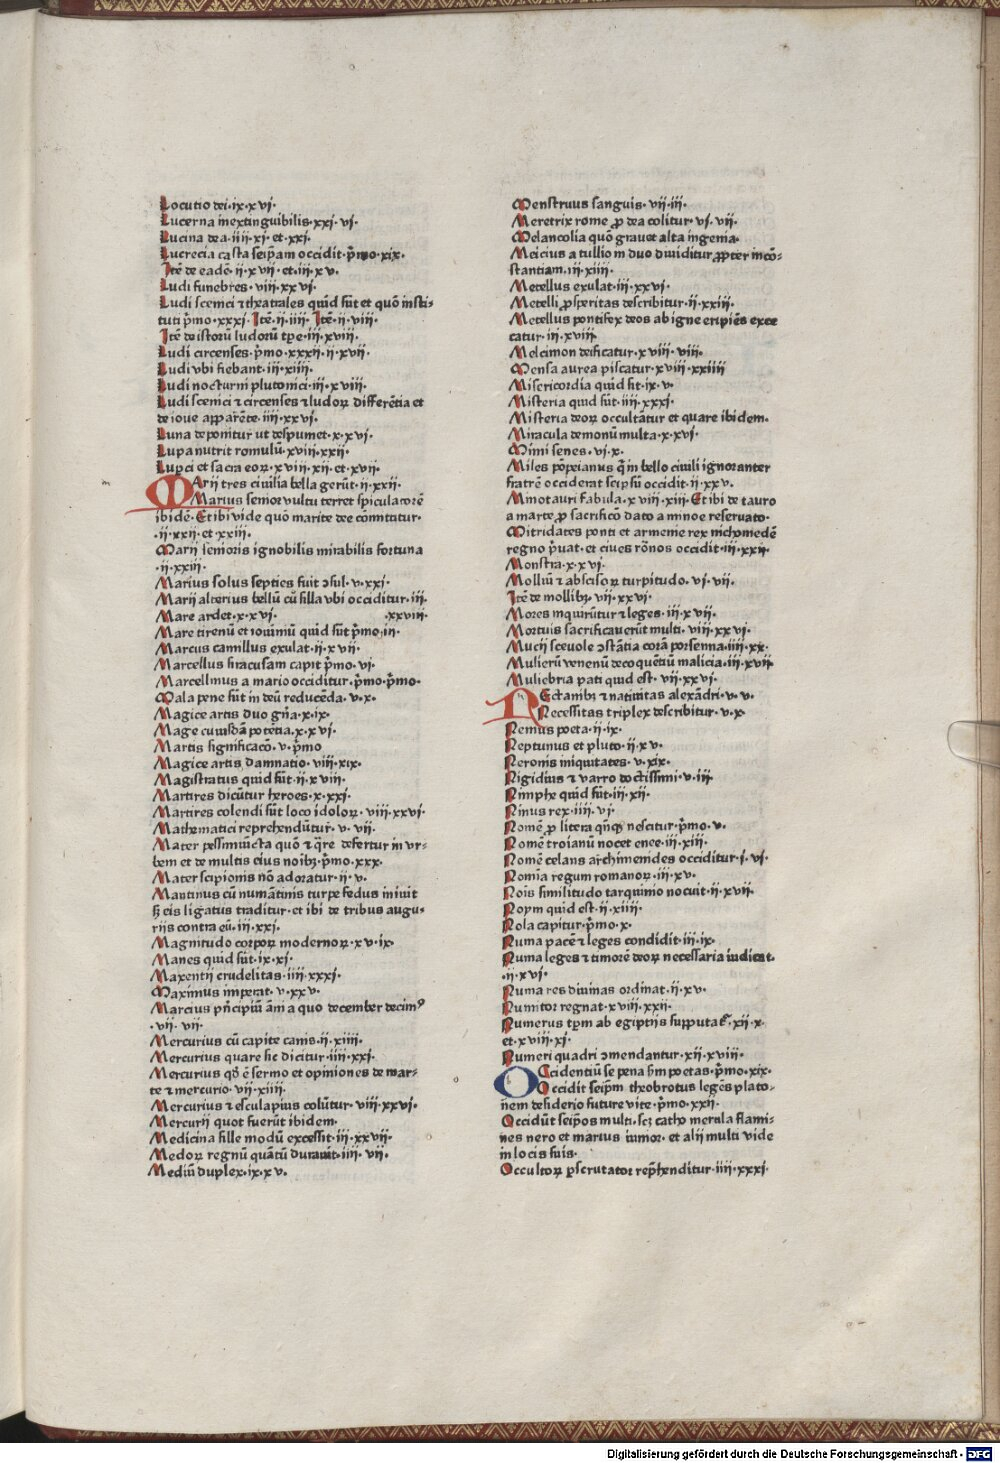 Locutio dei·ix·xvj·
Lucerna inextinguibilis·xxj·vj·
Lucina dea·iiij·xj·et·xxj·
Lucrecia casta seip̄am occidit·p̄mo·xix·
Itē de eadē·ij·xvij·et·iij·xv·
Ludi funebres·viij·xxvj·
Ludi scenici ⁊ theatrales quid sūt et quō insti-
tuti p̄mo·xxxj·Itē·ij·iiij·Itē·ij·viij·
Itē de istorū ludorū tp̄e·iij·xviij·
Ludi circenses·p̄mo·xxxij·ij·xvij·
Ludi vbi fiebant·iij·xiiij·
Ludi nocturni plutonici·iij·xviij·
Ludi scenici ⁊ circenses ⁊ ludoꝝ differētia et
de ioue apparēte·iiij·xxvj·
Luna deponitur ut despumet·x·xvj·
Lupa nutrit romulū·xviij·xxij·
Luperci et sacra eoꝝ·xviij·xij·et·xvij·
MArij tres ciuilia bella gerūt·ij·xxij·
Marius senior vultu terret spiculatorē
ibidē·Et ibi vide quō marite dee cōmtatur·
·ij·xxij·et·xxiij·
Marij senioris ignobilis mirabilis fortuna
·ij·xxiij·
Marius solus septies fuit ↄsul·v·xxj·
Marij alterius bellū cū silla vbi occiditur·iij·
Mare ardet·x·xvj· ·xxviij·
Mare tirenū et iouiniū quid sūt p̄mo·iij·
Marcus camillus exulat·ij·xvij·
Marcellus siracusam capit p̄mo·vj·
Marcellinus a mario occiditur·p̄mo·p̄mo·
Mala pene sūt in deū reducēda·v·x·
Magice artis duo gn̄a·x·ix·
Mage cuiusdā potētia·x·xvj·
Martis significacō·v·p̄mo
Magice artis damnatio·viij·xix·
Magistratus quid sūt·ij·xviij·
Martires dicūtur heroes·x·xxj·
Martires colendi sūt loco idoloꝝ·viij·xxvj·
Mathematici reprehendūtur·v·vij·
Mater pessinūcta quō ⁊ q̄re defertur in vr-
bem et de multis eius noībꝫ·p̄mo·xxx·
Mater scipionis nō adoratur·ij·v·
Mantinus cū numātinis turpe fedus iniuit
ꝫ eis ligatus traditur·et ibi de tribus augu-
rijs contra eū·iij·xxj·
Magnitudo corpoꝝ modernoꝝ·xv·ix·
Manes quid sūt·ix·xj·
Maxentij crudelitas·iiij·xxxj·
Maximus imperat·v·xxv·
Marcius p̄ncipiū āni a quo december decimꝰ
·vij·vij·
Mercurius cū capite canis·ij·xiiij·
Mercurius quare sic dicitur·iiij·xxj·
Mercurius qđ ē sermo et opiniones de mar-
te ⁊ mercurio·vij·xiiij·
Mercurius ⁊ esculapius colūtur·viij·xxvj·
Mercurij quot fuerūt ibidem·
Medicina sille modū excessit·iij·xxvij·
Medoꝝ regnū quātū durauit·iiij·vij·
Mediū duplex·ix·xv·
Menstruus sanguis·vij·iij·
Meretrix rome ꝓ dea colitur·vj·vij·
Melancolia quō grauet alta ingenia·
Meicius a tullio in duo diuiditur ꝓpter incō-
stantiam·iij·xiiij·
Metellus exulat·iij·xxvj·
Metelli ꝓsperitas describitur·ij·xxiij·
Metellus pontifex deos ab igne eripiēs exce
catur·iij·xviij·
Melcimon deificatur·xviij·viij·
Mensa aurea piscatur·xviij·xxiiij
Misericordia quid sit·ix·v·
Misteria quid sūt·iiij·xxxj·
Misteria deoꝝ occultātur et quare ibidem·
Miracula demonū multa·x·xvj·
Mimi senes·vj·x·
Miles pōpeianus q̄ in bello ciuili ignoranter
fratrē occiderat seip̄sū occidit·ij·xxv·
Minotauri fabula·xviij·xiij·Et ibi de tauro
a marte ꝓ sacrificō dato a minoe reseruato·
Mitridates ponti et armenie rex nichomedē
regno p̄uat·et ciues rōnos occidit·iij·xxij·
Monstra·x·xvj·
Molliū ⁊ abscisoꝝ turpitudo·vj·vij·
Itē de mollibꝫ·vij·xxvj·
Mores inquirūtur ⁊ leges·iij·xvij·
Mortuis sacrificauerūt multi·viij·xxvj·
Mucij sceuole ↄstātia corā porsenna·iiij·xx·
Mulierū venenū decoquētiū malicia·iij·xvij·
Muliebria pati quid est·vij·xxvj·
NEctanibꝫ ⁊ natiuitas alexādri·v·v·
Necessitas triplex describitur·v·x·
Nemus poeta·ij·ix·
Neptunus et pluto·ij·xv·
Neronis iniquitates·v·xix·
Nigidius ⁊ varro doctissimi·v·iij·
Nimphe quid sūt·iij·xij·
Ninus rex·iiij·vj·
Nomē ꝓ litera qn̄qꝫ nescitur·p̄mo·v·
Nomē troianū nocet enee·iij·xiij·
Nomē celans archimenides occiditur·j·vj·
Nomīa regum romanoꝝ·iij·xv·
Nois similitudo tarquinio nocuit·ij·xvij·
Noym quid est·ij·xiiij·
Nola capitur·p̄mo·x·
Numa pacē ⁊ leges condidit·iij·ix·
Numa leges ⁊ timorē deoꝝ necessaria iudicat·
·ij·xvj·
Numa res diuinas ordinat·ij·xv·
Numitor regnat·xviij·xxij·
Numerus tp̄m ab egiptijs supputaᵗ·xij·x·
et·xviij·xj·
Numeri quadri ↄmendantur·xij·xviij·
OCcidentiū se pena ẜm poetas·p̄mo·xix·
Occidit seip̄m theobrotus legēs plato-
nem desiderio future vite·p̄mo·xxij·
Occidūt seip̄os multi·scꝫ catho merula flami-
nes nero et marius iunior·et alij multi vide
in locis suis·
Occultoꝝ ꝑscrutator rep̄henditur·iiij·xxxj·
Digitalisierung gefördert durch die Deutsche Forschungsgemeinschaft - DFG